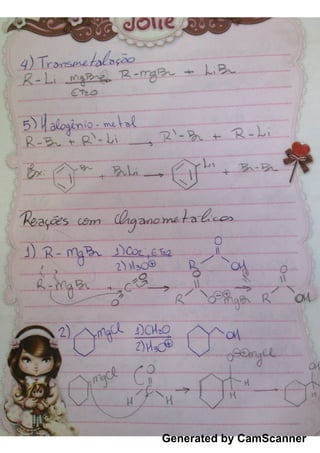 Jolie
4) Transmetalação
R-Li MgBr2 R-MgBr + LiBr
ET2O
5) Halogênio-metal
R-Br + R'-Li → R'-Br + R-Li
Ex: Br + BuLi → Li + Br-Bu
Reações com Organometálicos
1) R-MgBr 1) CO2, ET2O
2) H3O⊕ R O OH
R-MgBr + O C O → R O O⊖ ⊕MgBr R O OH
2) MgCl 1) CH2O OH
2) H3O⊕
O⊖⊕MgCl
MgCl O C H H → H H OH H H
Generated by CamScanner